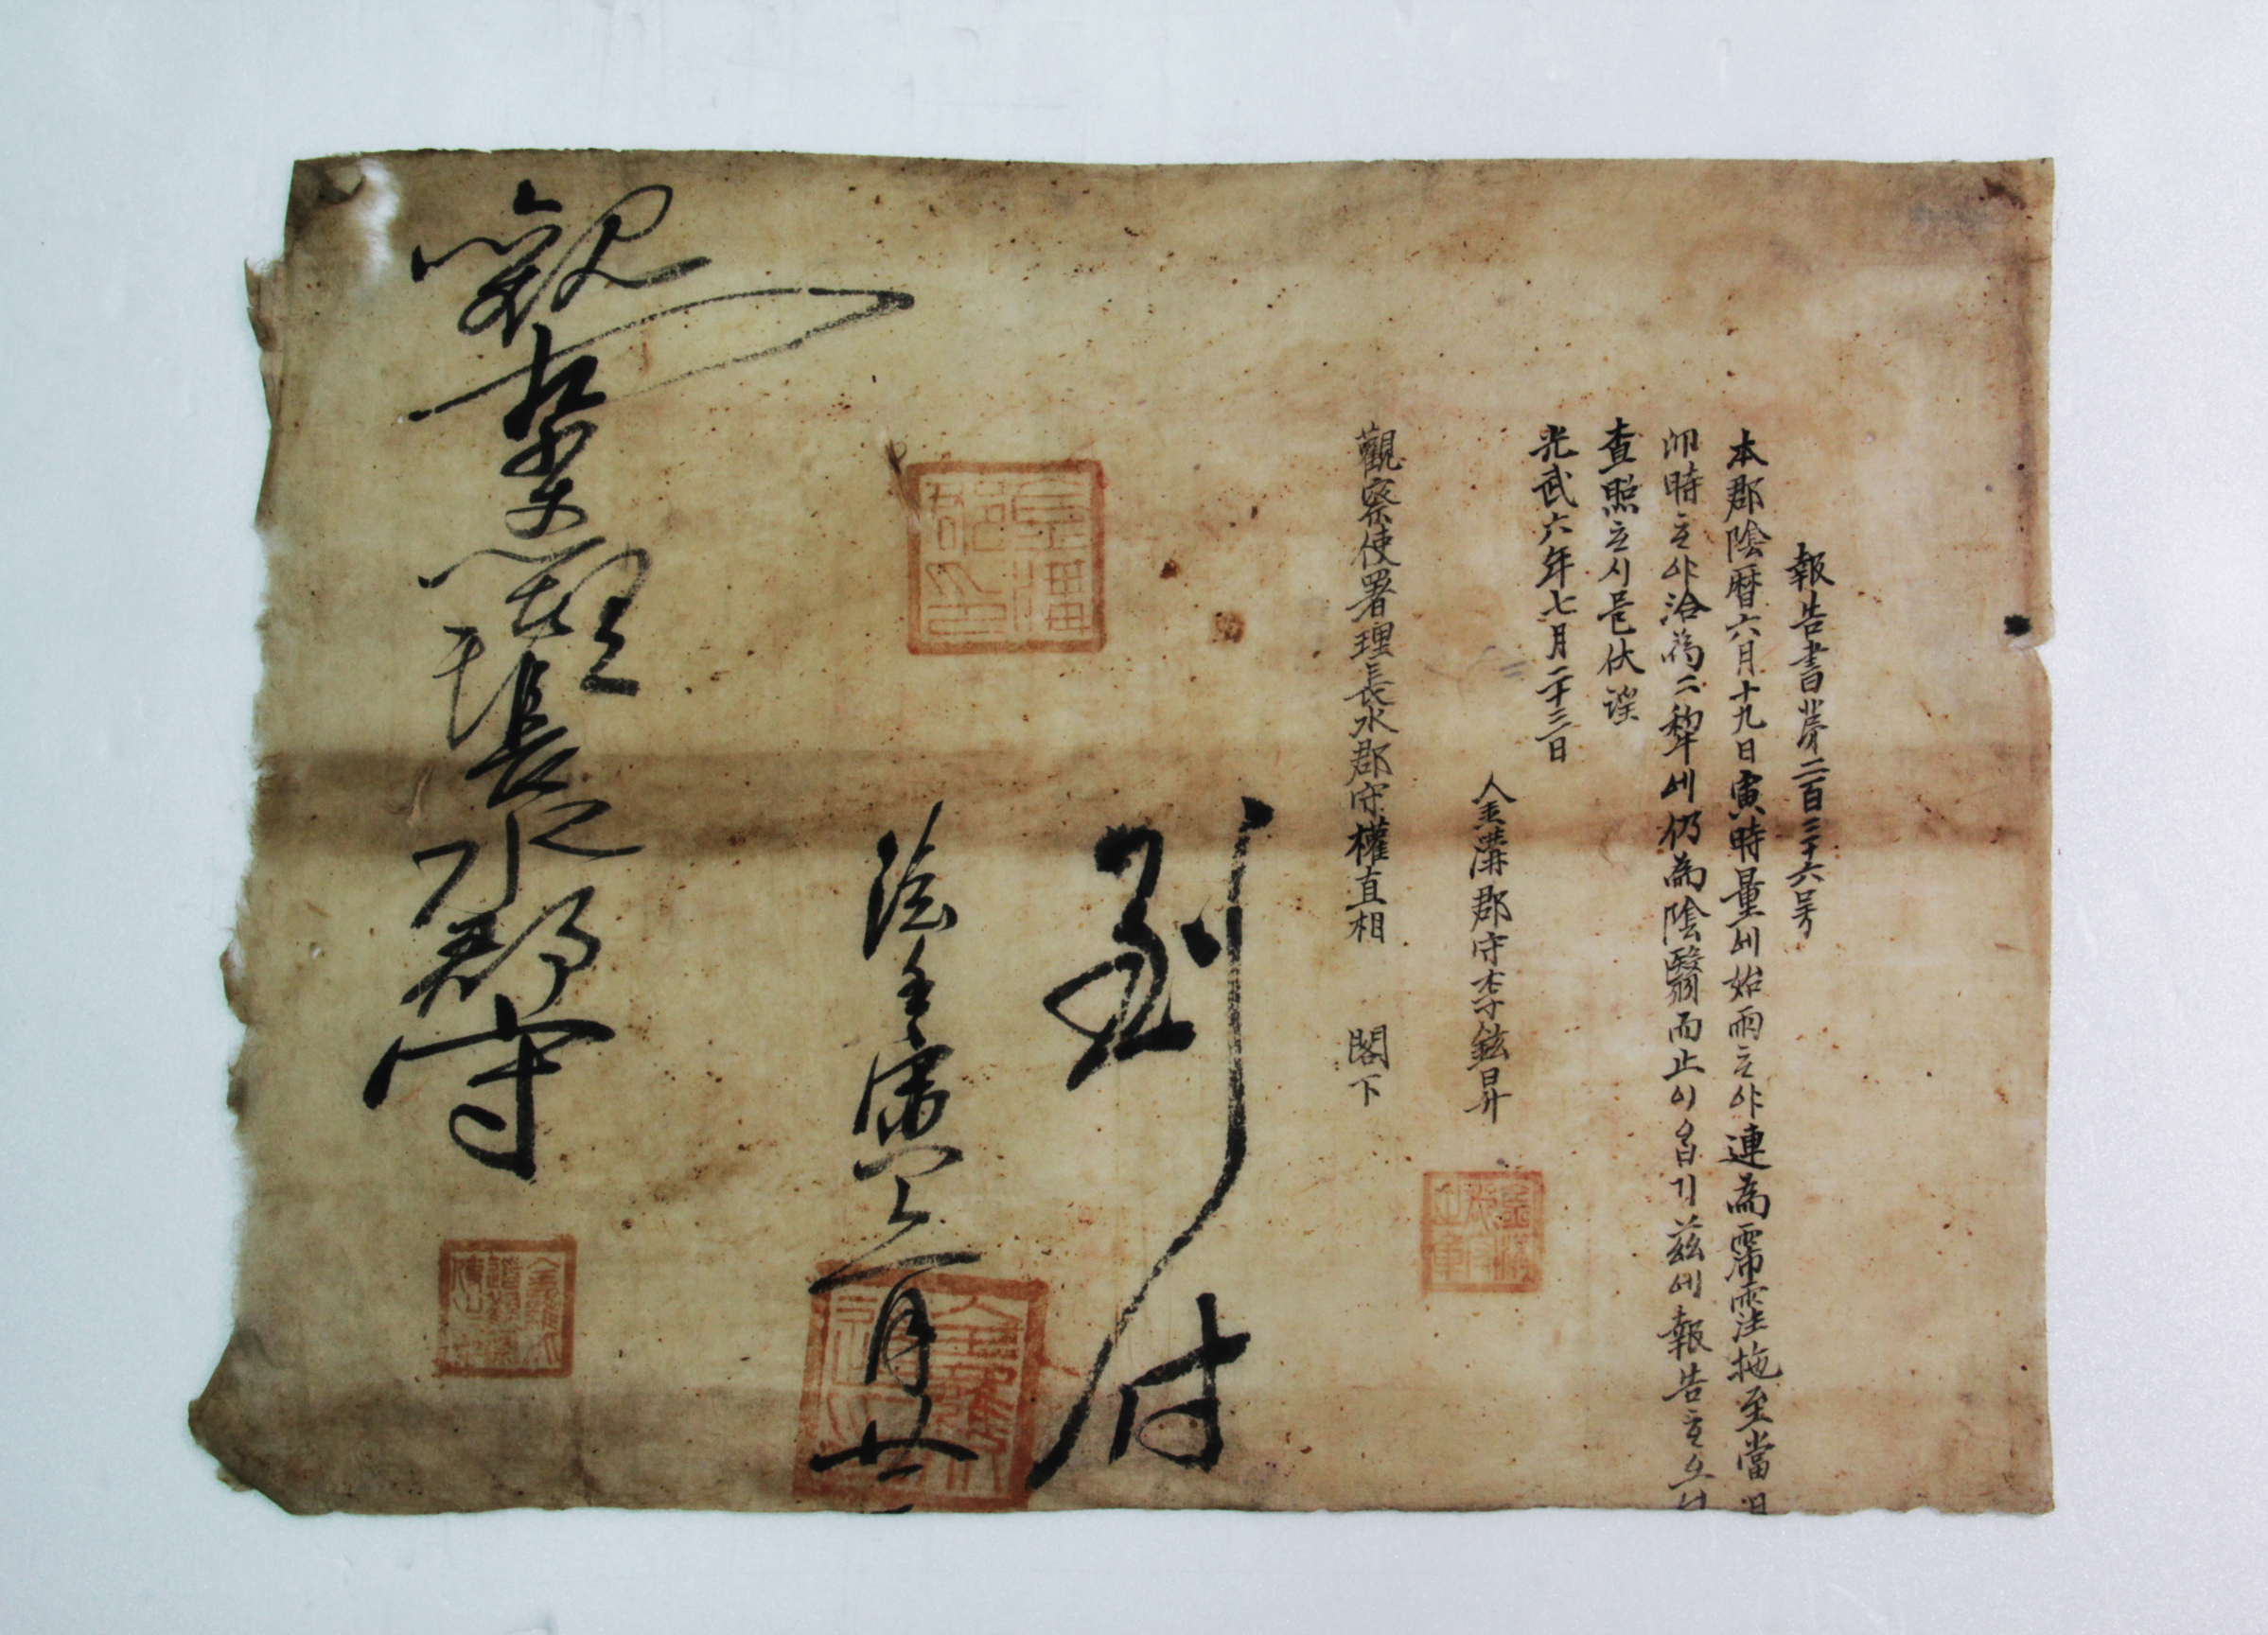 報告書第二百三十六号
本郡陰暦六月十九日寅時量에始雨하야連為霈霔拖至當日
卯時하야洽為二犂에仍為陰翳而止이암기玆에報告하오니
査照하시믈伏望
光武六年七月二十三日
金溝郡守李鉉昇
觀察使署理長水郡守權直相 閣下
到付
陰壬寅六月廿
觀察署理長水郡守